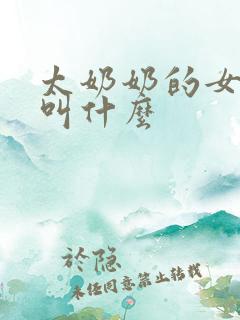 太奶奶的女
叫什麼
於隐
未经同意禁止转载